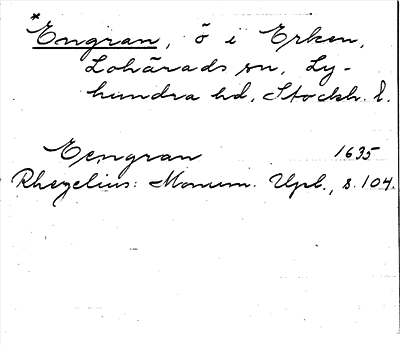 *
Engran, ö i Erken,
Lohärads sn, Ly-
hundra hd, Stockh. l.
Eengran 1635
Rhezelius: Monum. Upl., s. 104.